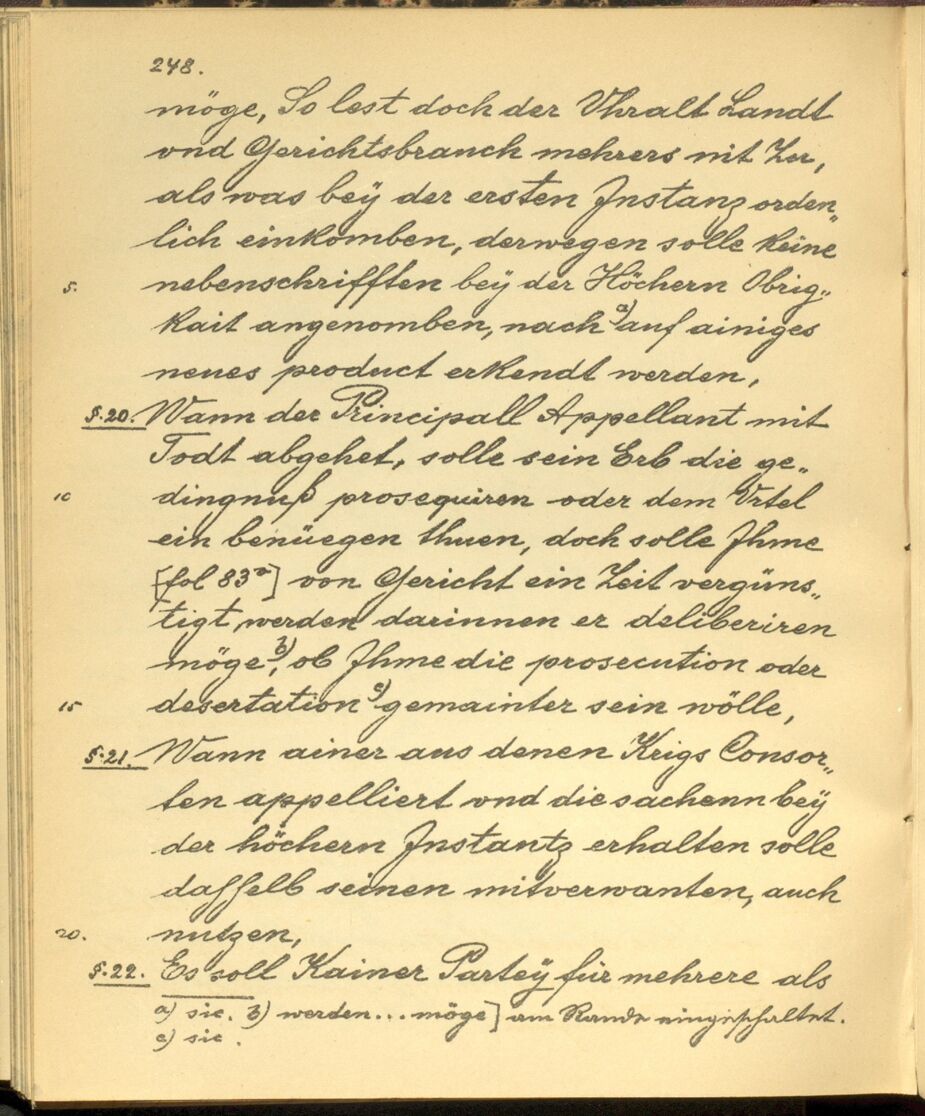 248.
möge, So lest doch der Vhralt Landt
vnd Gerichtsbrauch mehrers nit Zue,
als was beÿ der ersten Instanz orden„
lich einkomben, derwegen solle keine
5. nebenschrifften beÿ der Höchern Obrig„
kait angenomben, nach a) auf ainiges
neues product erkendt werden,
§.20. Wann der Principall Appellant mit
Todt abgehet, solle sein Erb die ge„
10 dingnuß prosequiren oder dem Vrtel
ein benüegen thuen, doch solle Ihme
[fol 83ʳ] von Gericht ein Zeit vergüns„
tigt werden darinnen er deliberiren
möge b), ob Ihme die prosecution oder
15 desertation c) gemainter sein wölle,
§.21. Wann ainer aus denen Krigs Consor„
ten appelliert vnd die sachenn beÿ
der höchern Instantz erhalten solle
dasselb seinen mitverwanten, auch
20. nutzen,
§.22. Es soll Kainer Parteÿ für mehrere als
a) sic. b) werden...möge] am Rande eingeschaltet.
c) sic.